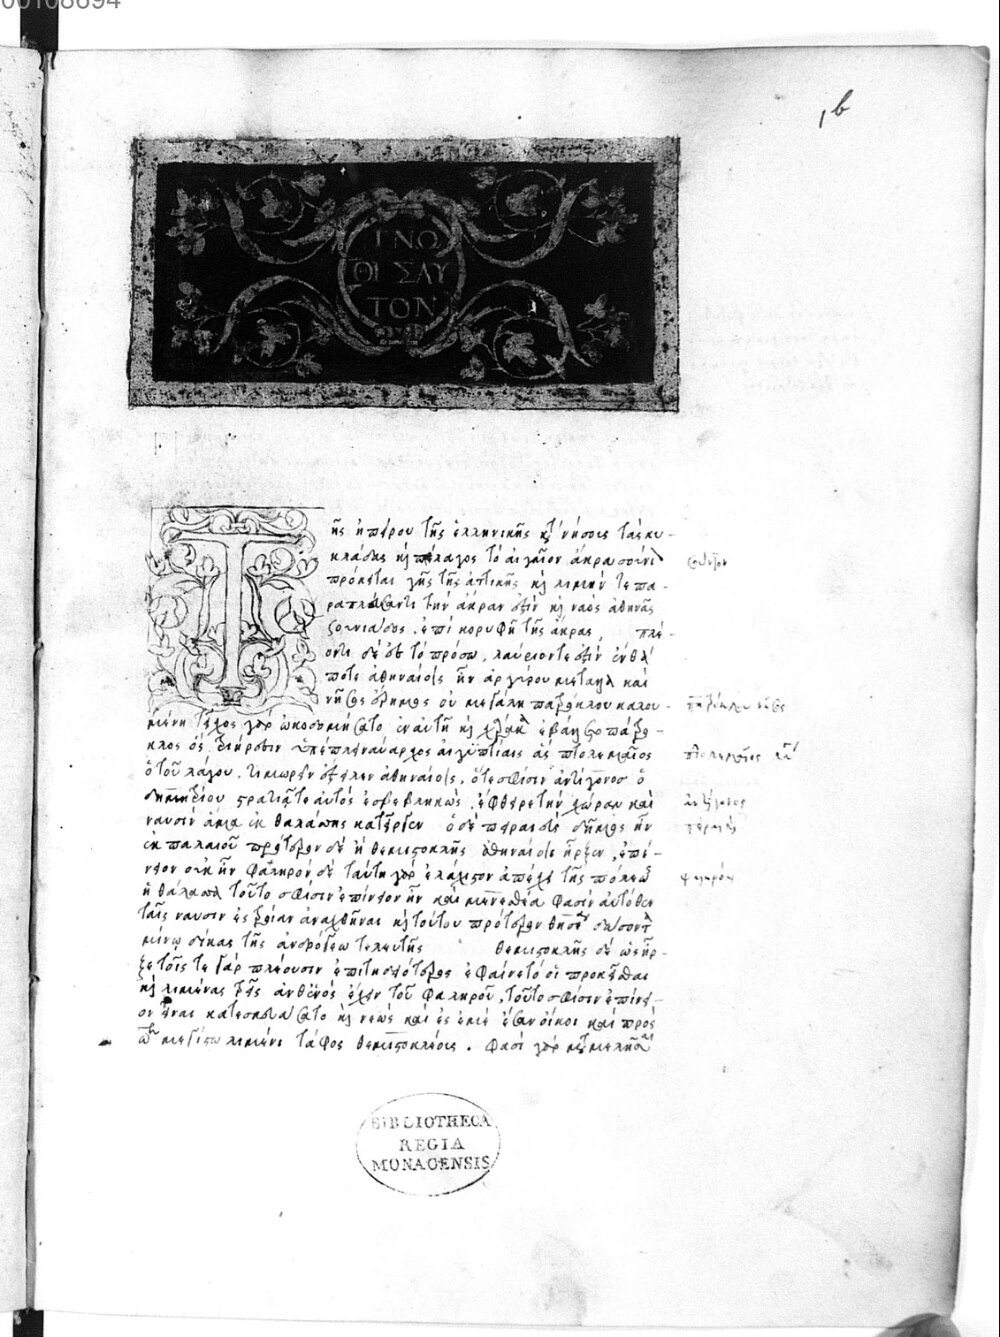 16
ΓΝΩ
ΘΙ ΣΑΥ
ΤΟΝ
Τῆς ἠπείρου τῆς ἑλληνικῆς κτ' νήσους τὰς κυ-
κλάδας καὶ πέλαγος τὸ αἰγαῖον ἄκρα σούνι
πρόκειται γῆς τῆς ἀττικῆς καὶ λιμήν τε πα-
ραπλεύσαντι τὴν ἄκραν ἐστὶν καὶ ναὸς ἀθηνᾶς
σουνιάδος, ἐπὶ κορυφῇ τῆς ἄκρας, πλέ-
οντι δὲ ἐς τὸ πρόσω, λαύριόν τε ἐστὶν ἔνθα
ποτε ἀθηναίοις ἦν ἀργύρου μέταλλα καὶ
νῆσος ἔρημος οὐ μεγάλη πατρόκλου καλου-
μένη τεῖχος γὰρ ὠκοδομήσατο ἐν αὐτῇ καὶ χάρακα ἐβάλετο πάτρο-
κλος ὃς τριήρεσιν ὑπέπλει ναύαρχος αἰγυπτίαις ἃς πτολεμαῖος
ὁ τοῦ λάγου, τιμωρεῖν ἔστειλεν ἀθηναίοις, ὅτε σφίσιν ἀντίγονος ὁ
δημητρίου στρατιᾶ τε αὐτὸς ἐσβεβληκὼς, ἔφθειρε τὴν χώραν καὶ
ναυσὶν ἅμα ἐκ θαλάσσης κατεῖργεν ὁ δὲ πειραιεὺς δῆμος ἦν
ἐκ παλαιοῦ πρότερον δὲ ἢ θεμιστοκλῆς ἀθηναίοις ἦρξεν, ἐπί-
νειον οὐκ ἦν φαληρὸν δὲ ταύτῃ γὰρ ἐλάχιστον ἀπέχει τῆς πόλεως
ἡ θάλασσα τοῦτο σφίσιν ἐπίνειον ἦν καὶ μενεσθέα φασὶν αὐτόθεν
ταῖς ναυσὶν ἐς τροίαν ἀναχθῆναι καὶ τούτου πρότερον θησέα δώσοντα
μίνῳ δίκας τῆς ἀνδρόγεω τελευτῆς θεμιστοκλῆς δὲ ὡς ἦρ-
ξε τοῖς τε γὰρ πλέουσιν ἐπιτηδειότερος ἐφαίνετό οἱ προκεῖσθαι
καὶ λιμένας τρεῖς ἀνθ' ἑνὸς ἔχειν τοῦ φαληροῦ, τοῦτο σφίσιν ἐπίνει-
ον εἶναι κατεσκευάσατο καὶ νεὼς καὶ ἐς ἐμὲ ἦσαν οἶκοι καὶ πρὸς
τῷ μεγίστῳ λιμένι τάφος θεμιστοκλέους. φασὶ γὰρ μεταμελῆσαι
σούνιον
πατρόκλου νῆσος
πτολεμαῖος
ἀντίγονος
πειραιεύς
φαληρόν
BIBLIOTHECA
REGIA
MONACENSIS